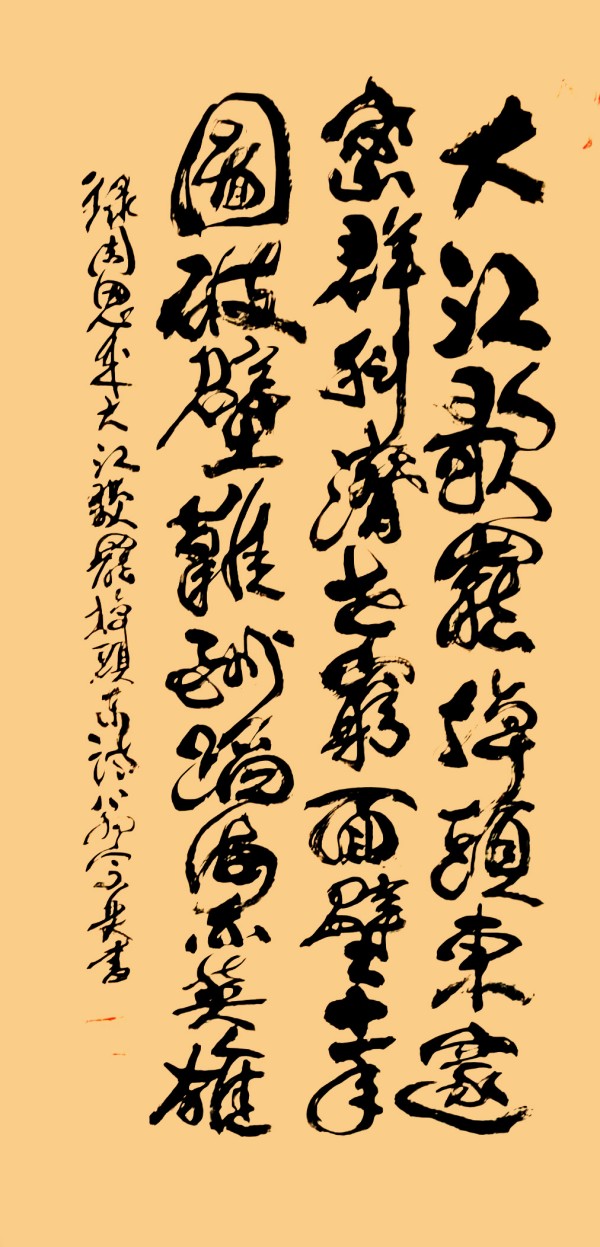 大江歌罷掉頭東邃
密群科濟世窮面壁十年
圖破壁難酬蹈海亦英雄
録周恩来大江歌罷掉頭东詩書